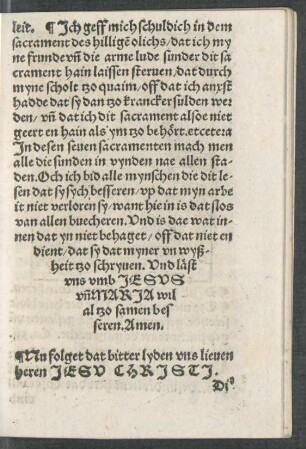 leit. ¶ Ich geff mich schuldich in dem
sacrament des hilligē olichs/dat ich my
ne frunde vn̄ die arme lude sunder dit sa
crament hain laissen steruen/dat durch
myne scholt tzo quaim/off dat ich anxst
hadde dat sy dan tzo krancker sulden wer
den/vn̄ dat ich dit sacrament alsoe niet
geert en hain als ym tzo behört.etcetera
In desen seuen sacramenten mach men
alle die sunden in vynden nae allen sta-
den.Och ich bid alle mynschen die dit le-
sen dat sy sych besseren/vp dat myn arbe
it niet verloren sy/want hie in is dat slos
van allen buecheren. Vnd is dae wat in-
nen dat yn niet behaget/off dat niet en
dient/dat sy dat myner vn wyß-
heit tzo schryuen. Vnd läst
vns vmb JESVS
vn̄ MARIA wil
al tzo samen bes
seren.Amen.
¶ Nu folget dat bitter lyden vns lieuen
heren JESV CHRISTI.